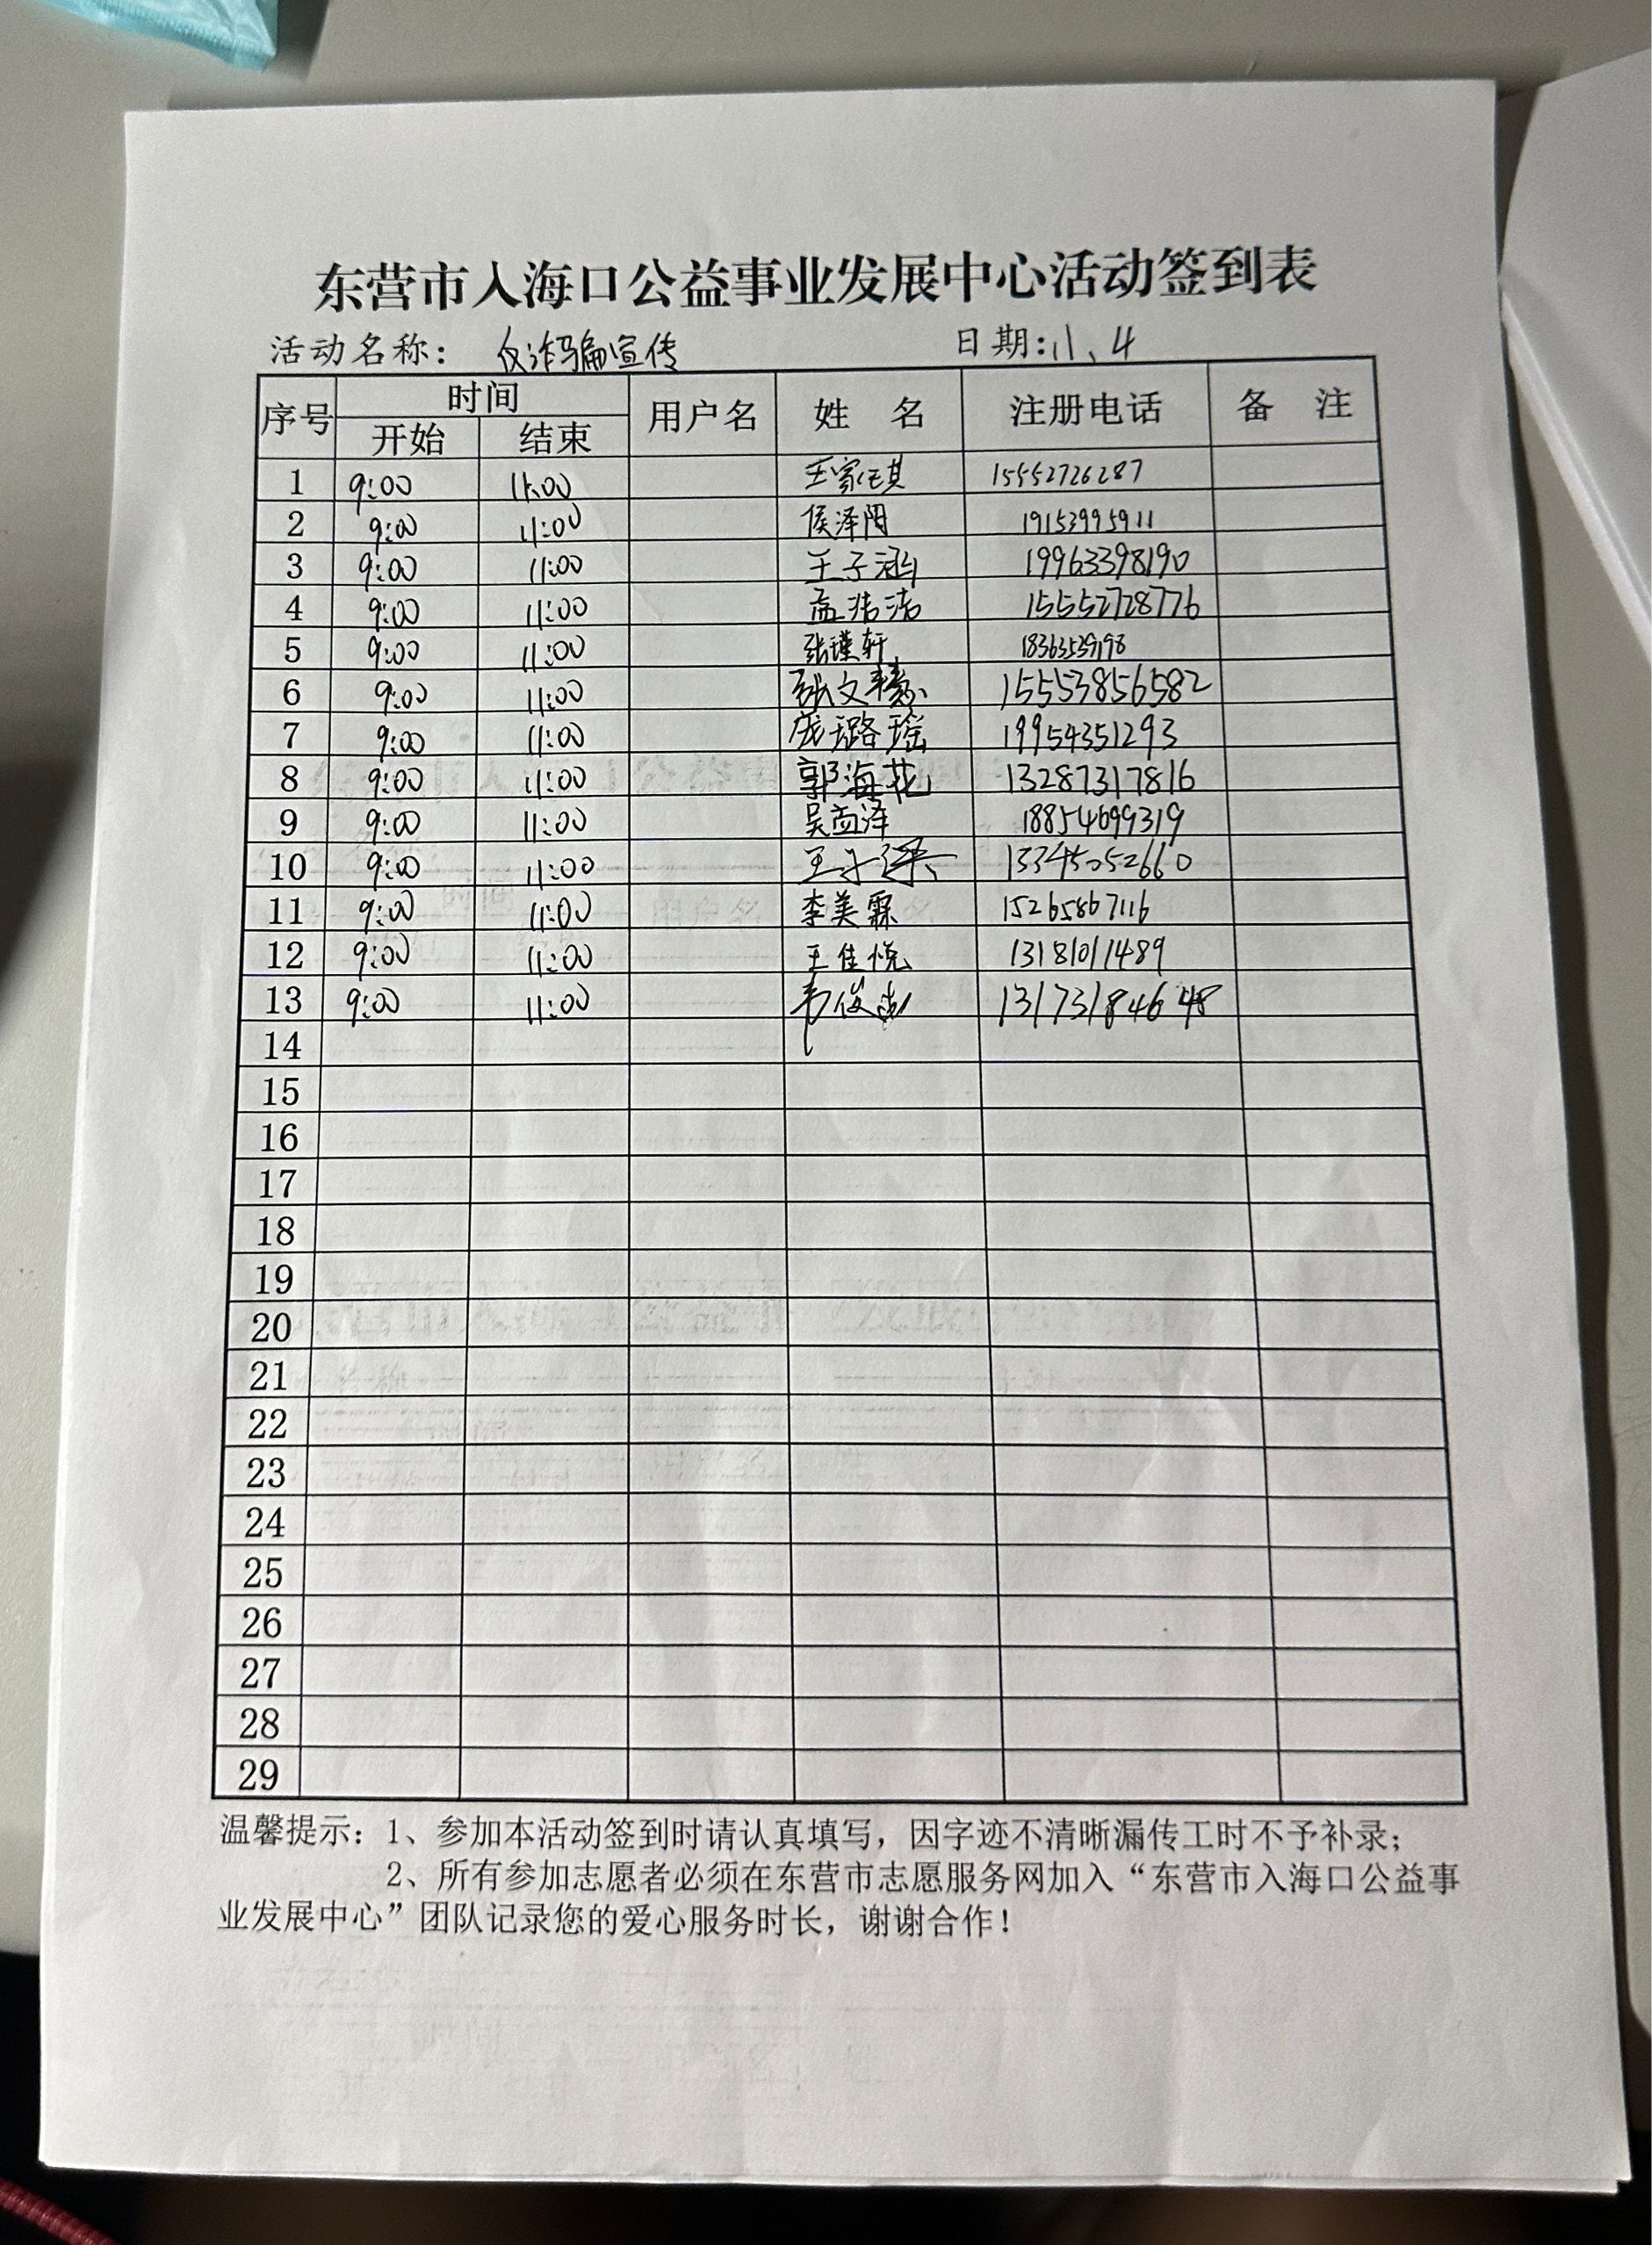 东营市入海口公益事业发展中心活动签到表
活动名称： 反诈骗宣传 日期：11、4
序号 时间 用户名 姓 名 注册电话 备 注
开始 结束
1 9:00 11:00 王家琪 15552726287
2 9:00 11:00 侯泽阳 19153995911
3 9:00 11:00 王子涵 19963398190
4 9:00 11:00 孟洁洁 15552728776
5 9:00 11:00 张瑾轩
6 9:00 11:00 张文慧 15553856582
7 9:00 11:00 庞璐瑶 19954351293
8 9:00 11:00 郭海花 13287317816
9 9:00 11:00 吴孟泽 18854699319
10 9:00 11:00 王子 15345052660
11 9:00 11:00 李美霖 15265867116
12 9:00 11:00 王佳悦 13181011489
13 9:00 11:00 韦俊 13173184648
14
15
16
17
18
19
20
21
22
23
24
25
26
27
28
29
温馨提示：1、参加本活动签到时请认真填写，因字迹不清晰漏传工时不予补录；
2、所有参加志愿者必须在东营市志愿服务网加入“东营市入海口公益事
业发展中心”团队记录您的爱心服务时长，谢谢合作！